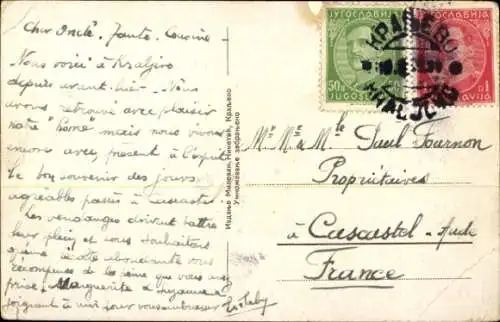 Cher Oncle, Tante, Cousine
Nous voici à Kraljevo
depuis avant-hier. Nous
avons retrouvé avec plaisir
notre "home" mais nous vivons
encore avec, présent à l'esprit
le bon souvenir des jours
agréables passés à Cascastel
Les vendanges doivent battre
leur plein et nous souhaitons
récompense de la peine que vous avez
prise. Marguerite & Suzanne se
joignent à moi pour vous embrasser
Издање Миловац Никетић, Краљево
Умножавање забрањено
ЈУГОСЛАВИЈА
50
ЈУГОСЛАВИЈА
1
КРАЉЕВО
KRALJEVO
Mr Mme & Mlle Paul Fournon
Propriétaires
à Cascastel - Aude
France